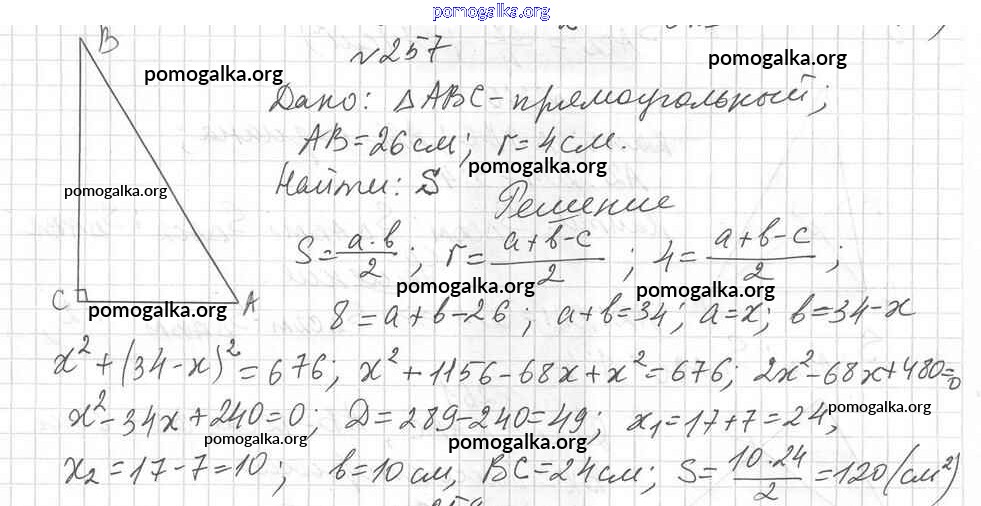 pomogalka.org
№257
B
pomogalka.org
pomogalka.org
Дано: △ABC-прямоугольный;
AB=26см; r=4см.
pomogalka.org
pomogalka.org
Найти: S
Решение
S=a·b/2; r=a+b-c/2; 4=a+b-c/2;
pomogalka.org
pomogalka.org
C
A
pomogalka.org
8=a+b-26; a+b=34; a=x; b=34-x
x²+(34-x)²=676; x²+1156-68x+x²=676; 2x²-68x+480=0
x²-34x+240=0; D=289-240=49; x₁=17+7=24,
pomogalka.org
pomogalka.org
pomogalka.org
x₂=17-7=10; b=10см, BC=24см; S=10·24/2=120(см²)